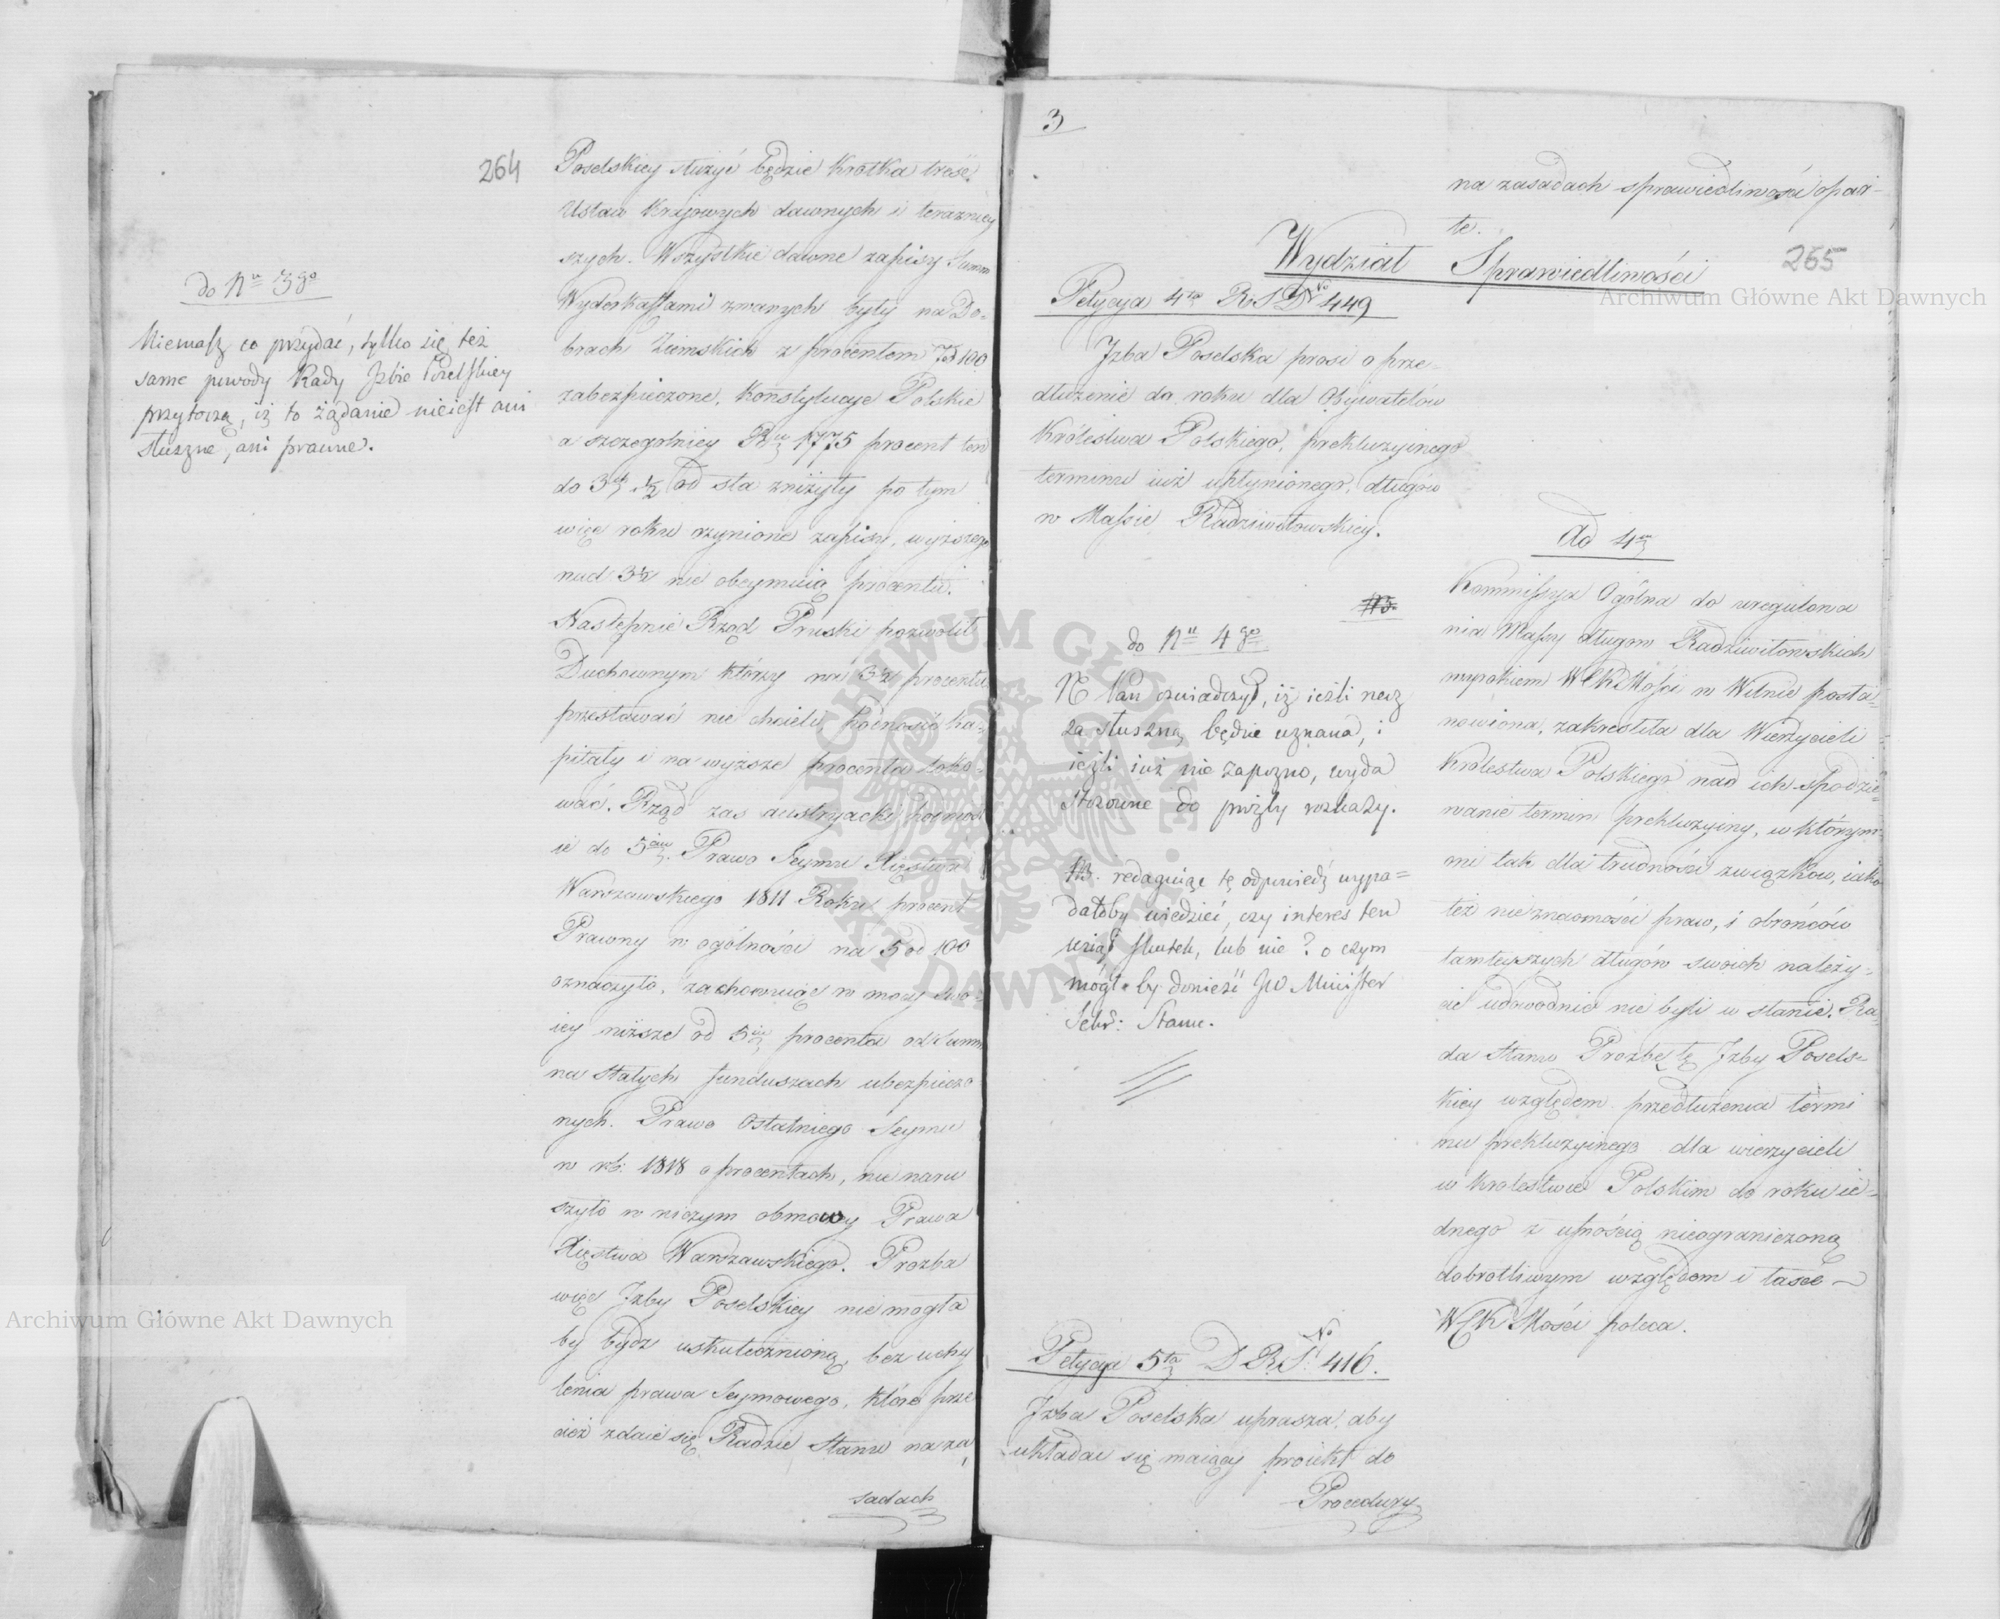 264
do Nru 3go
Niemasz co przydać, tylko się też
same powody Rady Izbie Poselskiey
przytoczą, iż to żądanie nieiest ani
słuszne, ani prawne.
Poselskiey służyć będzie krótka treść
Ustaw Kraiowych dawnych i teraźniey
szych. Wszystkie dawne zapisy Summ
Wyderkaffami zwanych były na Do-
brach Ziemskich z procentem 7 od 100
zabezpieczone, Konstytucye Polskie
a szczególniey Ru 1775 procent ten
do 3ch 1/2 od sta zniżyły po tym
więc roku czynione zapisy, wyższego
nad 3 1/2 nie obeymuią procentu.
Następnie Rząd Pruski pozwolił
Duchownym którzy na 3 1/2 procentu
przestawać nie chcieli, podnosić ka-
pitały i na wyższe procenta loko-
wać. Rząd zas austryacki podniosł
ie do 5ciu. Prawo Seymu Xięstwa
Warszawskiego 1811 Roku procent
Prawny w ogólności na 5 od 100
oznaczyło, zachowuiąc w mocy swo-
iey niższe od 5ciu procenta od Summ
na stałych funduszach ubezpieczo
nych. Prawo ostatniego Seymu
w rb: 1818 o procentach, nie naru
szyło w niczym obmowy Prawa
Xięstwa Warszawskiego. Prozba
więc Izby Poselskiey nie mogła
by bydz uskutecznioną, bez uchy
lenia prawa Seymowego, które prze
cież zdaie się Radzie Stanu na za,
sadach
3
na zasadach sprawiedliwości opar-
te.
265
Wydział Sprawiedliwości
Petycya 4ta R.S.D No 449
Izba Poselska prosi o prze-
dłużenie do roku dla Obywatelów
Królestwa Polskiego, prekluzyinego
terminu iuż upłynionego, długów
w Massie Radziwiłowskiey.
do Nru 4go
N Pan oświadczył, iż ieśli rzecz
za słuszną będzie uznana, i
ieżli iuż nie zapozno, wyda
stosowne do proźby rozkazy.
NB. redaguiąc tę odpowiedź wypa=
dałoby wiedzieć, czy interes ten
wziął skutek, lub nie? o czym
mógł by donieść JW Minister
Sekr: Stanu.
Petycya 5ta D.R.S. No 416.
Izba Poselska uprasza, aby
układać się maiący proiekt do
Procedury
Ad 4m
Kommissya Ogólna do uregulowa
nia Massy długow Radziwiłowskich
wyrokiem WCKMości w Wilnie posta-
nowiona, zakreśliła dla Wierzycieli
Królestwa Polskiego nad ich spodzie-
wanie termin prekluzyiny, w którym
oni tak dla trudności związków, iako
też nieznaomości praw, i obrońców
tamteyszych długów swoich należy-
cie udowodnić nie byli w stanie. Ra-
da Stanu Prozbę tę Izby Posels-
kiey względem przedłużenia termi
nu prekluzyinego dla wierzycieli
w Krolestwie Polskim do roku ie-
dnego z ufnością nieograniczoną
dobrotliwym względom i łasce
WCK Mości poleca.
Archiwum Główne Akt Dawnych
Archiwum Główne Akt Dawnych
ARCHIWUM GŁÓWNE AKT DAWNYCH